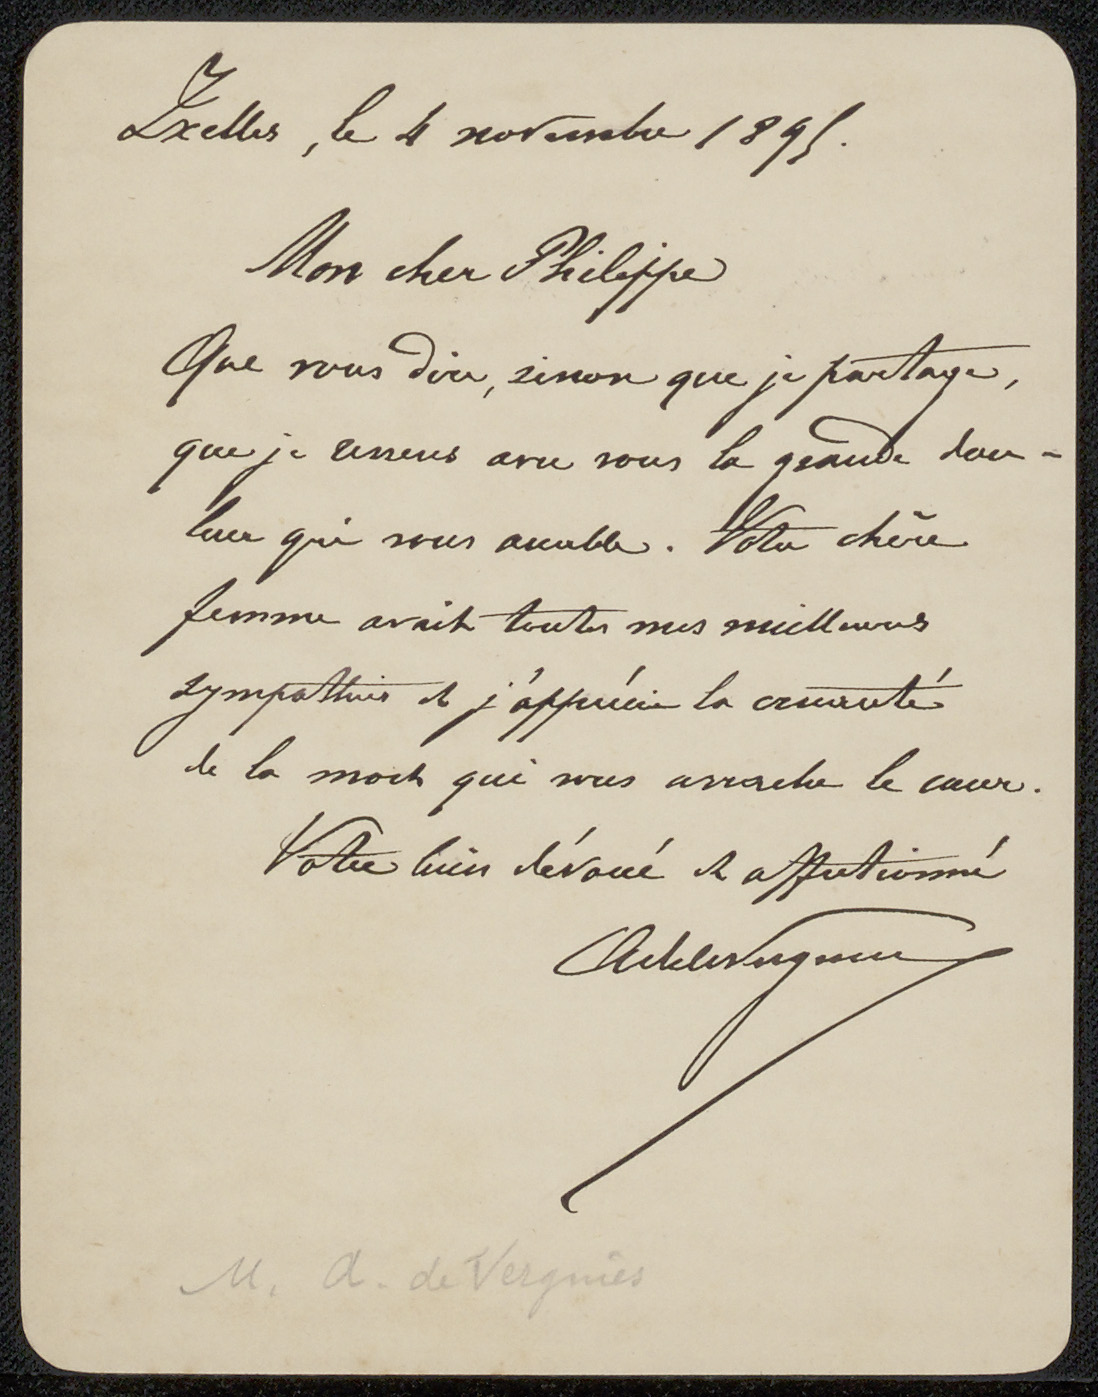 Ixelles, le 4 novembre 1895.
Mon cher Philippe
Que vous dire, sinon que je partage,
que je ressens avec vous la grande dou-
leur qui vous accable. Votre chère
femme avait toutes mes meilleures
sympathies et j'apprécie la cruauté
de la mort qui vous arrache le cœur.
Votre bien dévoué et affectionné
AdeVergnies
M. A. de Vergnies